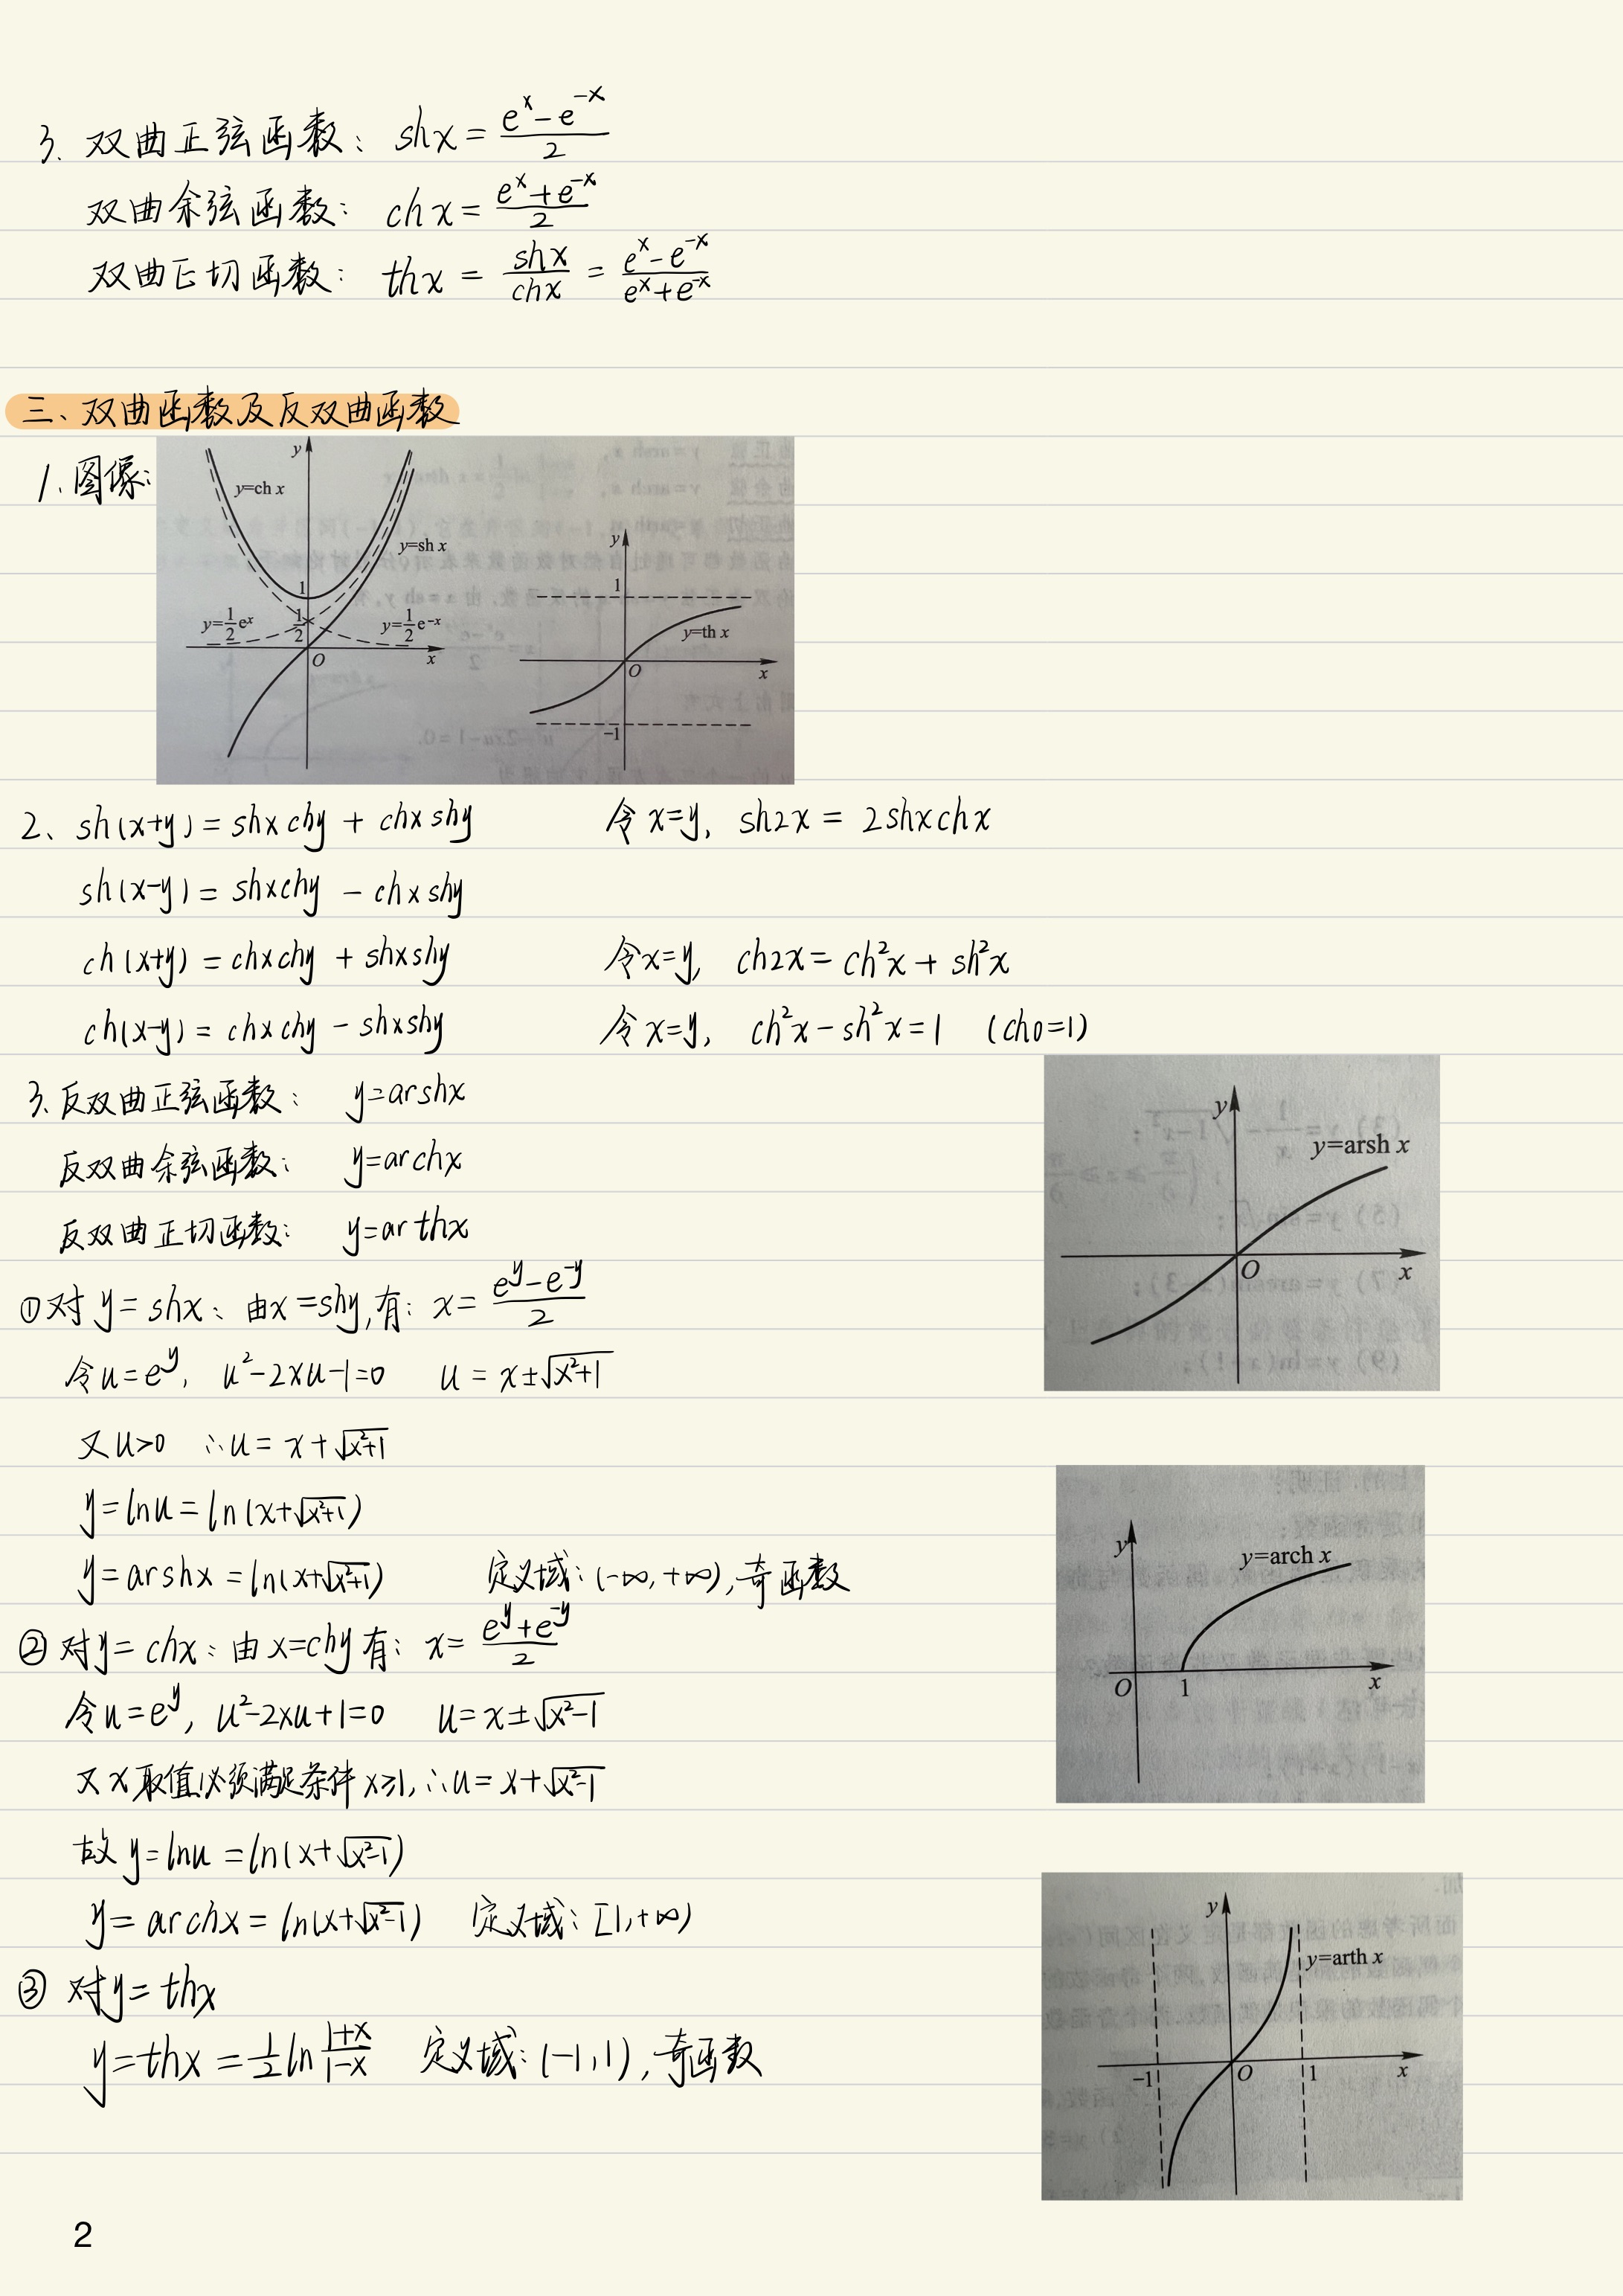 3. 双曲正弦函数: shx = (e^x - e^-x)/2
双曲余弦函数: chx = (e^x + e^-x)/2
双曲正切函数: thx = shx/chx = (e^x - e^-x)/(e^x + e^-x)
三、双曲函数及反双曲函数
1. 图像:
y
y=ch x
y=sh x
1
y=1/2 e^x
1/2
y=1/2 e^-x
O
x
y
1
y=th x
O
x
-1
2、 sh(x+y) = shx chy + chx shy 令 x=y, sh2x = 2shxchx
sh(x-y) = shxchy - chx shy
ch(x+y) = chxchy + shxshy 令x=y, ch2x = ch²x + sh²x
ch(x-y) = chxchy - shxshy 令 x=y, ch²x - sh²x = 1 (ch0=1)
3. 反双曲正弦函数: y=arshx
反双曲余弦函数: y=archx
反双曲正切函数: y=arthx
y
y=arsh x
O
x
①对 y = shx: 由x=shy,有: x = (e^y - e^-y)/2
令u=e^y, u²-2xu-1=0 u = x±√(x²+1)
又u>0 ∴u = x+√(x²+1)
y=lnu = ln(x+√(x²+1))
y = arshx = ln(x+√(x²+1)) 定义域: (-∞, +∞), 奇函数
y
y=arch x
O
1
x
② 对y = chx: 由 x=chy 有: x = (e^y + e^-y)/2
令u=e^y, u²-2xu+1=0 u = x±√(x²-1)
又 x 取值必须满足条件 x≥1, ∴u = x+√(x²-1)
故 y=lnu = ln(x+√(x²-1))
y = archx = ln(x+√(x²-1)) 定义域: [1,+∞)
③ 对y = thx
y=thx = 1/2 ln (1+x)/(1-x) 定义域: (-1,1), 奇函数
y
y=arth x
-1
O
1
x
2